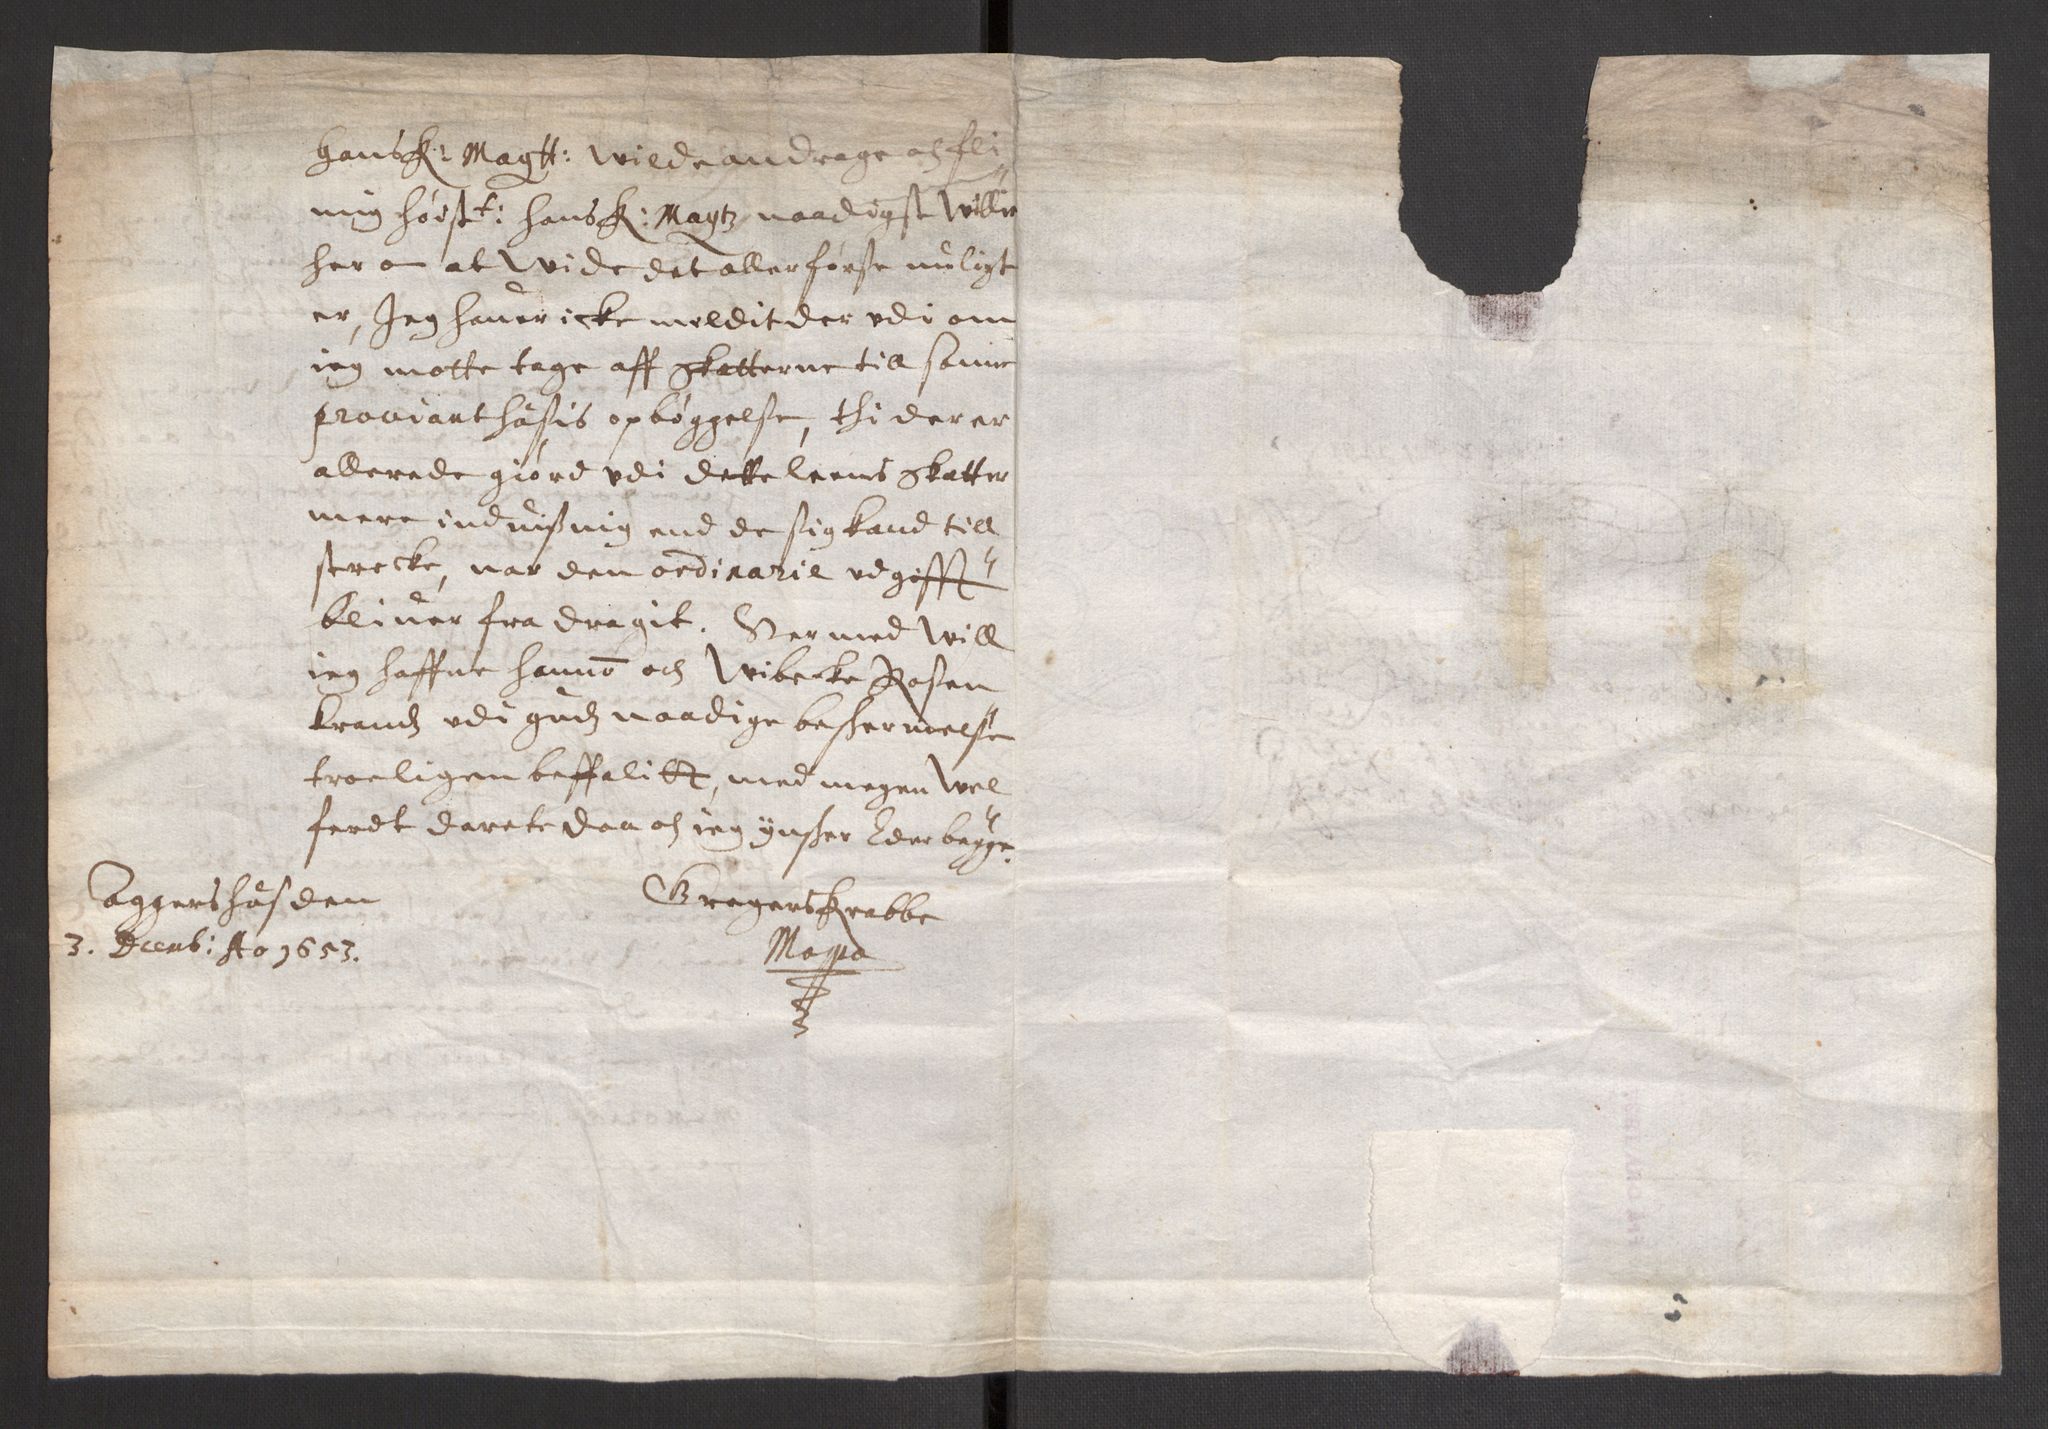 hans K: Magtt: wilde andrage och fli
mig høist: hans K: Magtz naadigst Willie
her om at Wide det aller første muligt
er, Jeg hauer icke meldit der vdi om
ieg motte tage aff skatterne till samme
proviant husis opbøggelse, thi der er
allerede giørd vdi dette leens skatter
mere induißnig end de sig kand till
strecke, nar den ordinarie vdgifft
bliuer fra dragit. Her med will
ieg haffue hannō och Wibecke Rosen
krandz vdi gudz naadige beskermelse
troeligen beffalitt, med megen wel
ferdt och ieg ynsker Eder begge.
Aggershus den
3. Decemb: Ao 1653.
Gregers Krabbe
Mappa